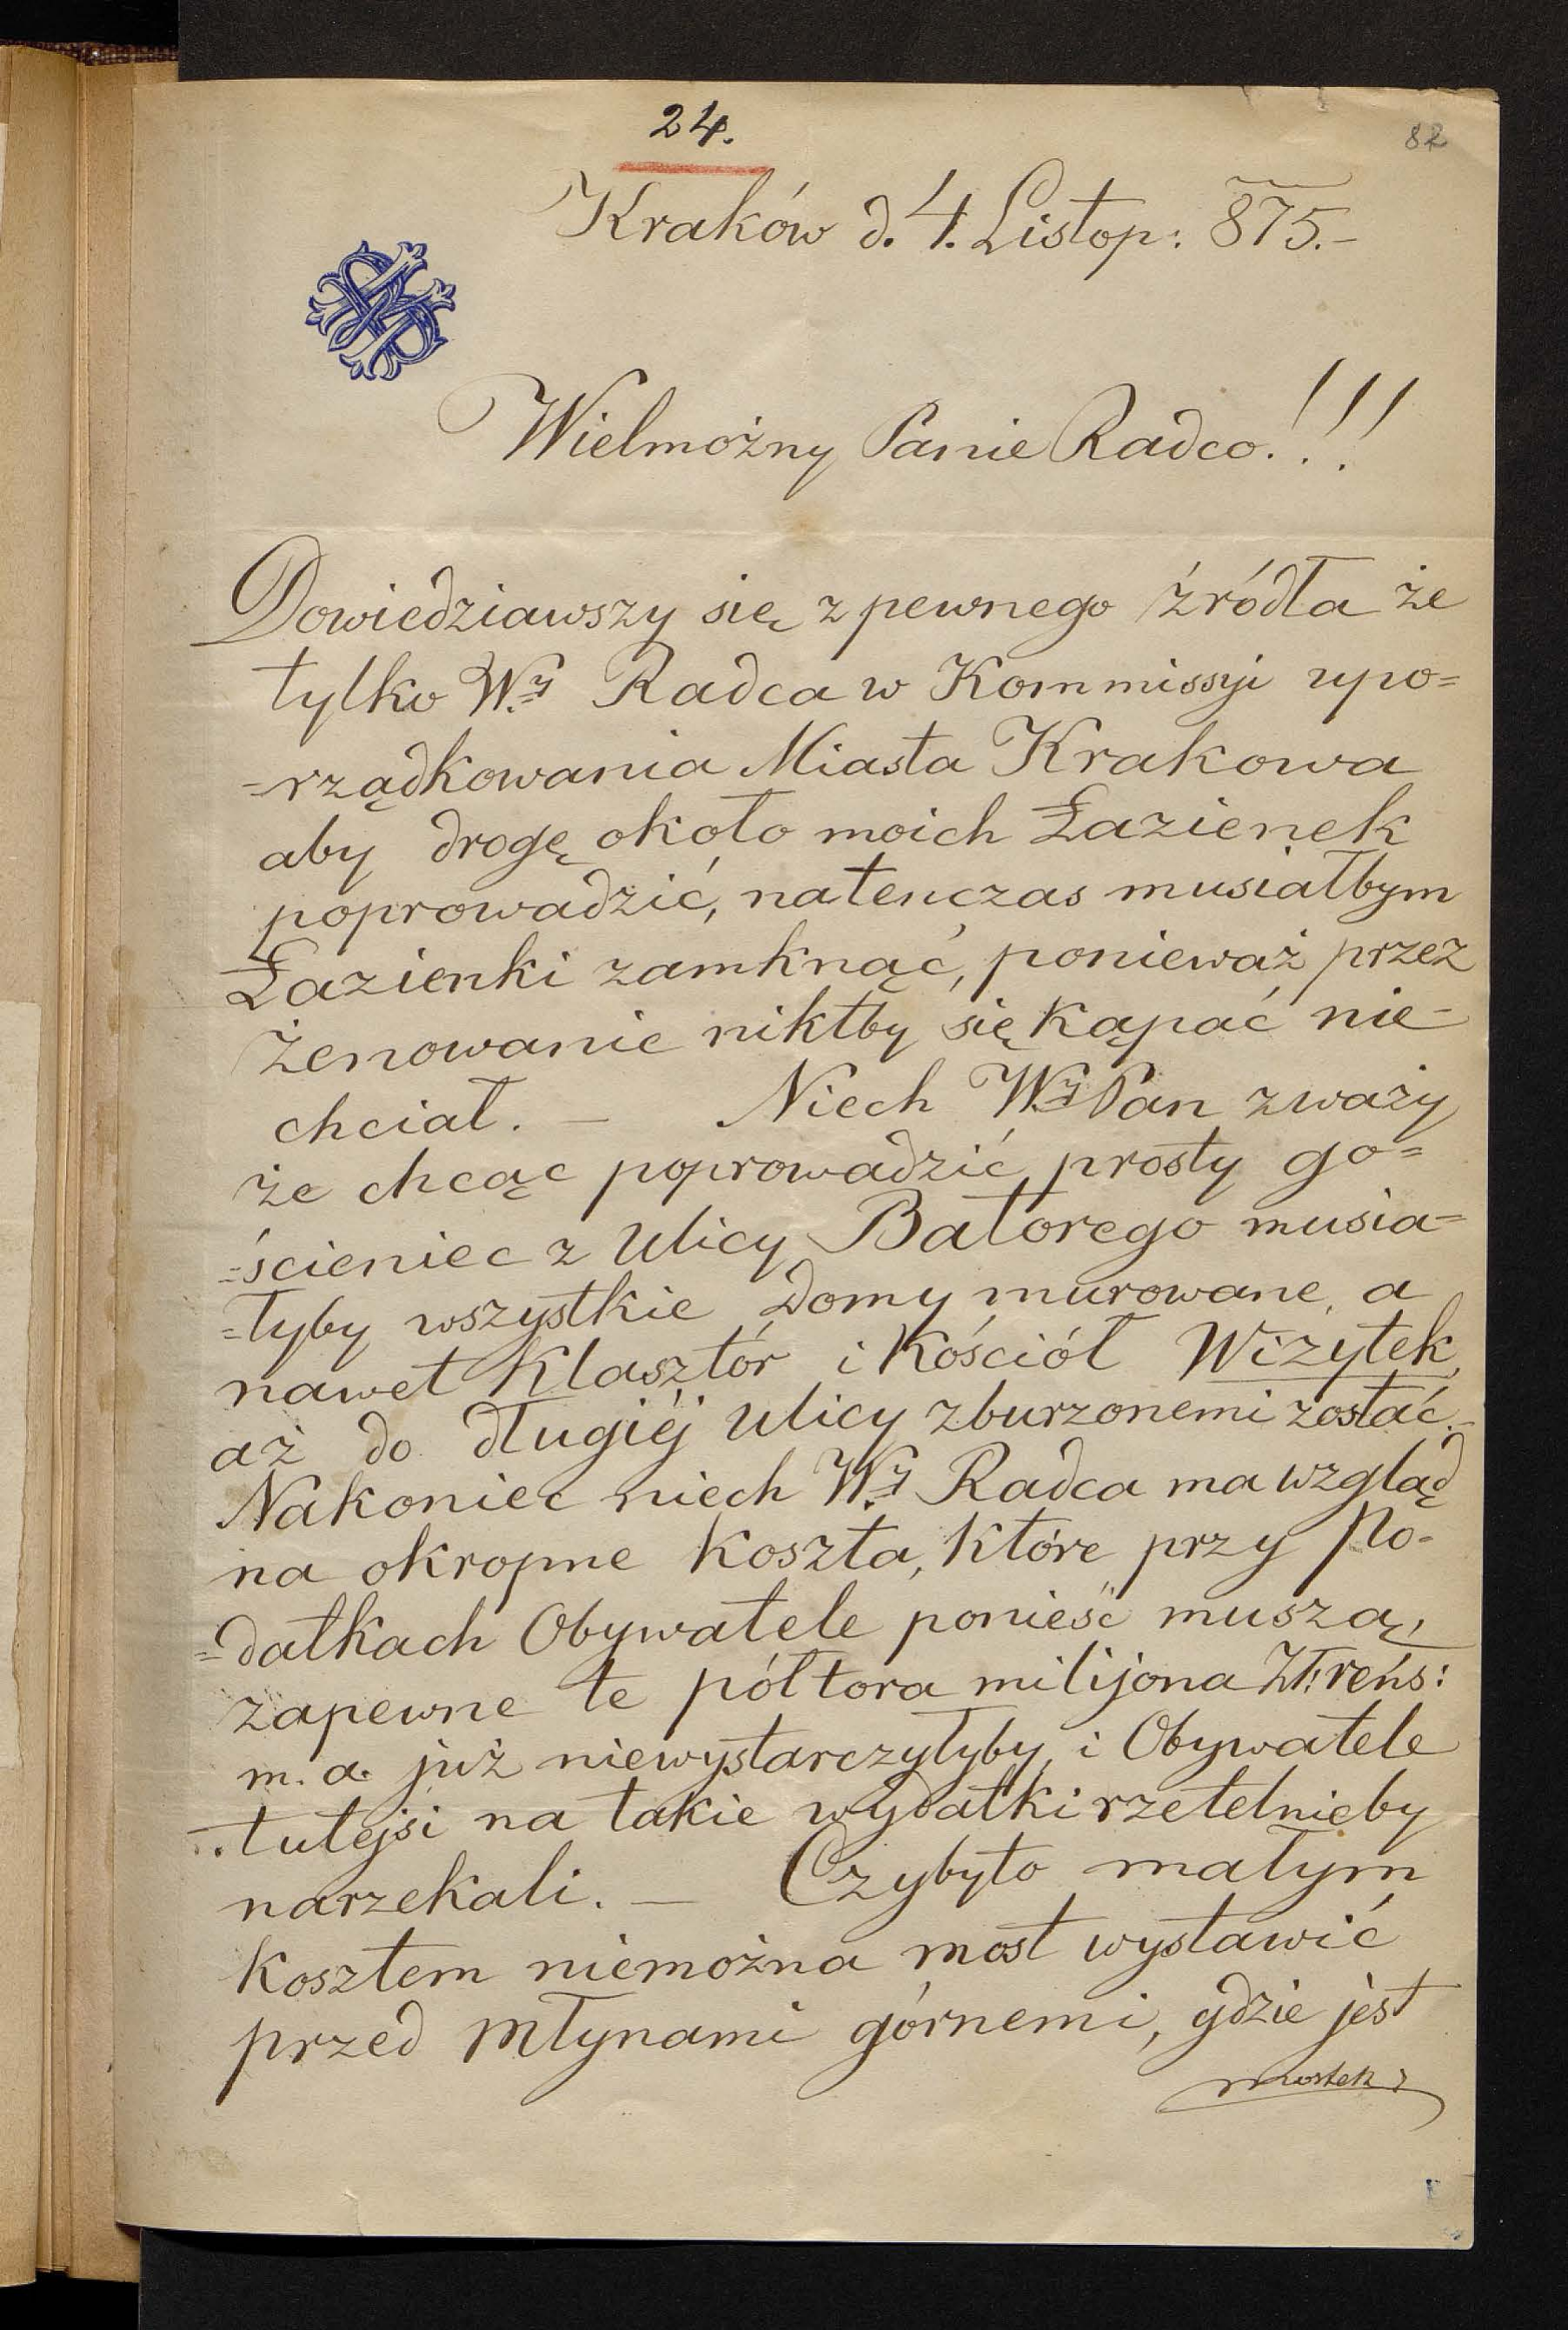 24.
82
Kraków d. 4. Listop: 875.-
Wielmożny Panie Radco.!!!
Dowiedziawszy się z pewnego źródła że
tylko W.y Radca w Kommissyi upo=
=rządkowania Miasta Krakowa
aby drogę około moich Łazienek
poprowadzić, natenczas musiałbym
Łazienki zamknąć, ponieważ przez
żenowanie niktby się kąpać nie-
chciał. — Niech W.y Pan zważy
że chcąc poprowadzić prosty go=
=ścieniec z Ulicy Batorego musia=
=łyby wszystkie Domy murowane, a
nawet Klasztór i Kościół Wizytek
aż do długiéj Ulicy zburzonemi zostać.-
Nakoniec niech W.y Radca ma wzgląd
na okropne Koszta, które przy Po-
=datkach Obywatele ponieść muszą,
zapewne te półtora milijona Zł: reńs:
m. a. już niewystarczyłyby, i Obywatele
tutejsi na takie wydatki rzetelnieby
narzekali. — Czybyło małym
Kosztem niemożna most wystawić
przed Młynami górnemi, gdzie jest
mostek